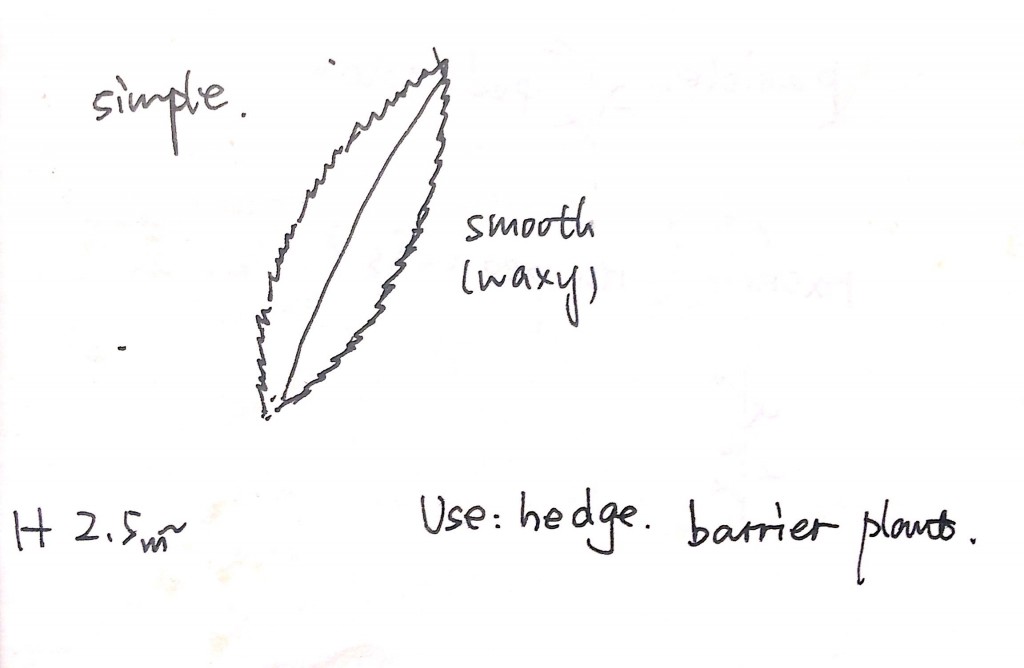 simple.
smooth
(waxy)
H 2.5m
Use: hedge. barrier plants.